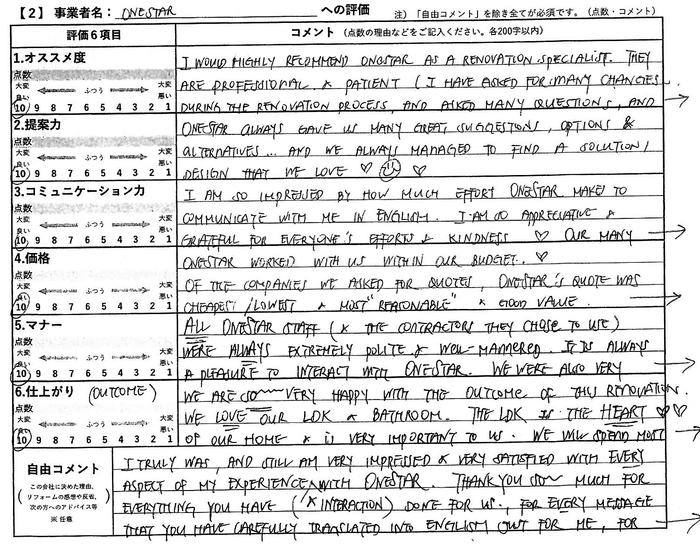 【2】 事業者名： ONESTAR への評価 注）「自由コメント」を除き全てが必須です。（点数・コメント）
評価6項目 コメント（点数の理由などをご記入ください。各200字以内）
1.オススメ度
点数
大変良い ふつう 大変悪い
10 9 8 7 6 5 4 3 2 1
I WOULD HIGHLY RECOMMEND ONESTAR AS A RENOVATION SPECIALIST. THEY
ARE PROFESSIONAL & PATIENT (I HAVE ASKED FOR MANY CHANGES
DURING THE RENOVATION PROCESS, AND ASKED MANY QUESTIONS, AND →
2.提案力
点数
大変良い ふつう 大変悪い
10 9 8 7 6 5 4 3 2 1
ONESTAR ALWAYS GAVE US MANY GREAT SUGGESTIONS, OPTIONS &
ALTERNATIVES... AND WE ALWAYS MANAGED TO FIND A SOLUTION/
DESIGN THAT WE LOVE ♡ ☺ ♡
3.コミュニケーション力
点数
大変良い ふつう 大変悪い
10 9 8 7 6 5 4 3 2 1
I AM SO IMPRESSED BY HOW MUCH EFFORT ONESTAR MAKE TO
COMMUNICATE WITH ME IN ENGLISH. I AM SO APPRECIATIVE &
GRATEFUL FOR EVERYONE'S EFFORTS & KINDNESS ♡ OUR MANY →
4.価格
点数
大変良い ふつう 大変悪い
10 9 8 7 6 5 4 3 2 1
ONESTAR WORKED WITH US WITHIN OUR BUDGET. ♡
OF THE COMPANIES WE ASKED FOR QUOTES, ONESTAR'S QUOTE WAS
CHEAPEST/LOWEST & MOST "REASONABLE" & GOOD VALUE. →
5.マナー
点数
大変良い ふつう 大変悪い
10 9 8 7 6 5 4 3 2 1
ALL ONESTAR STAFF (& THE CONTRACTORS THEY CHOSE TO USE)
WERE ALWAYS EXTREMELY POLITE & WELL-MANNERED. IT IS ALWAYS
A PLEASURE TO INTERACT WITH ONESTAR. WE WERE ALSO VERY →
6.仕上がり (OUTCOME)
点数
大変良い ふつう 大変悪い
10 9 8 7 6 5 4 3 2 1
WE ARE SO~~ VERY HAPPY WITH THE OUTCOME OF THIS RENOVATION.
WE LOVE OUR LDK & BATHROOM. THE LDK IS THE HEART ♡♡
OF OUR HOME & IS VERY IMPORTANT TO US. WE WILL SPEND MOST →
自由コメント
（この会社に決めた理由、リフォームの感想や反省、次の方へのアドバイス等）
※ 任意
I TRULY WAS, AND STILL AM VERY IMPRESSED & VERY SATISFIED WITH EVERY
ASPECT OF MY EXPERIENCE WITH ONESTAR. THANK YOU SO~ MUCH FOR
EVERYTHING YOU HAVE (& INTERACTION) DONE FOR US, FOR EVERY MESSAGE
THAT YOU HAVE CAREFULLY TRANSLATED INTO ENGLISH JUST FOR ME, FOR →